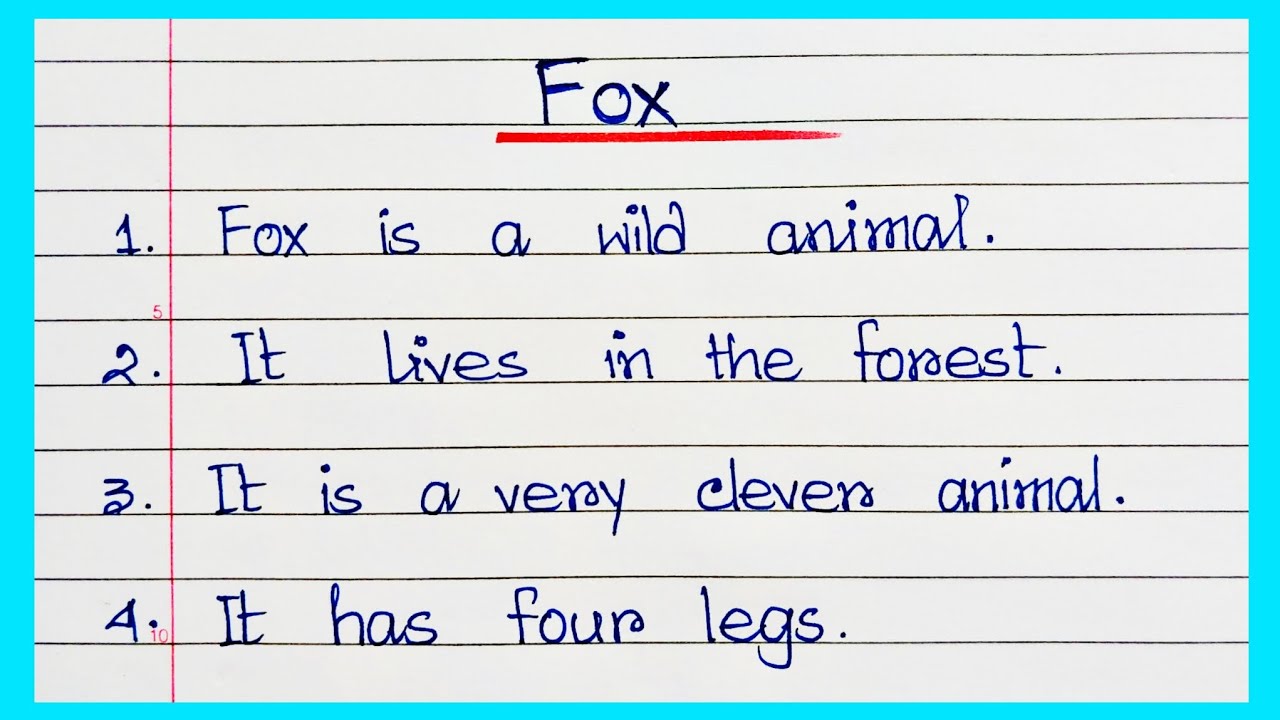 Fox
1. Fox is a wild animal.
5
2. It lives in the forest.
3. It is a very clever animal.
4. It has four legs.
10